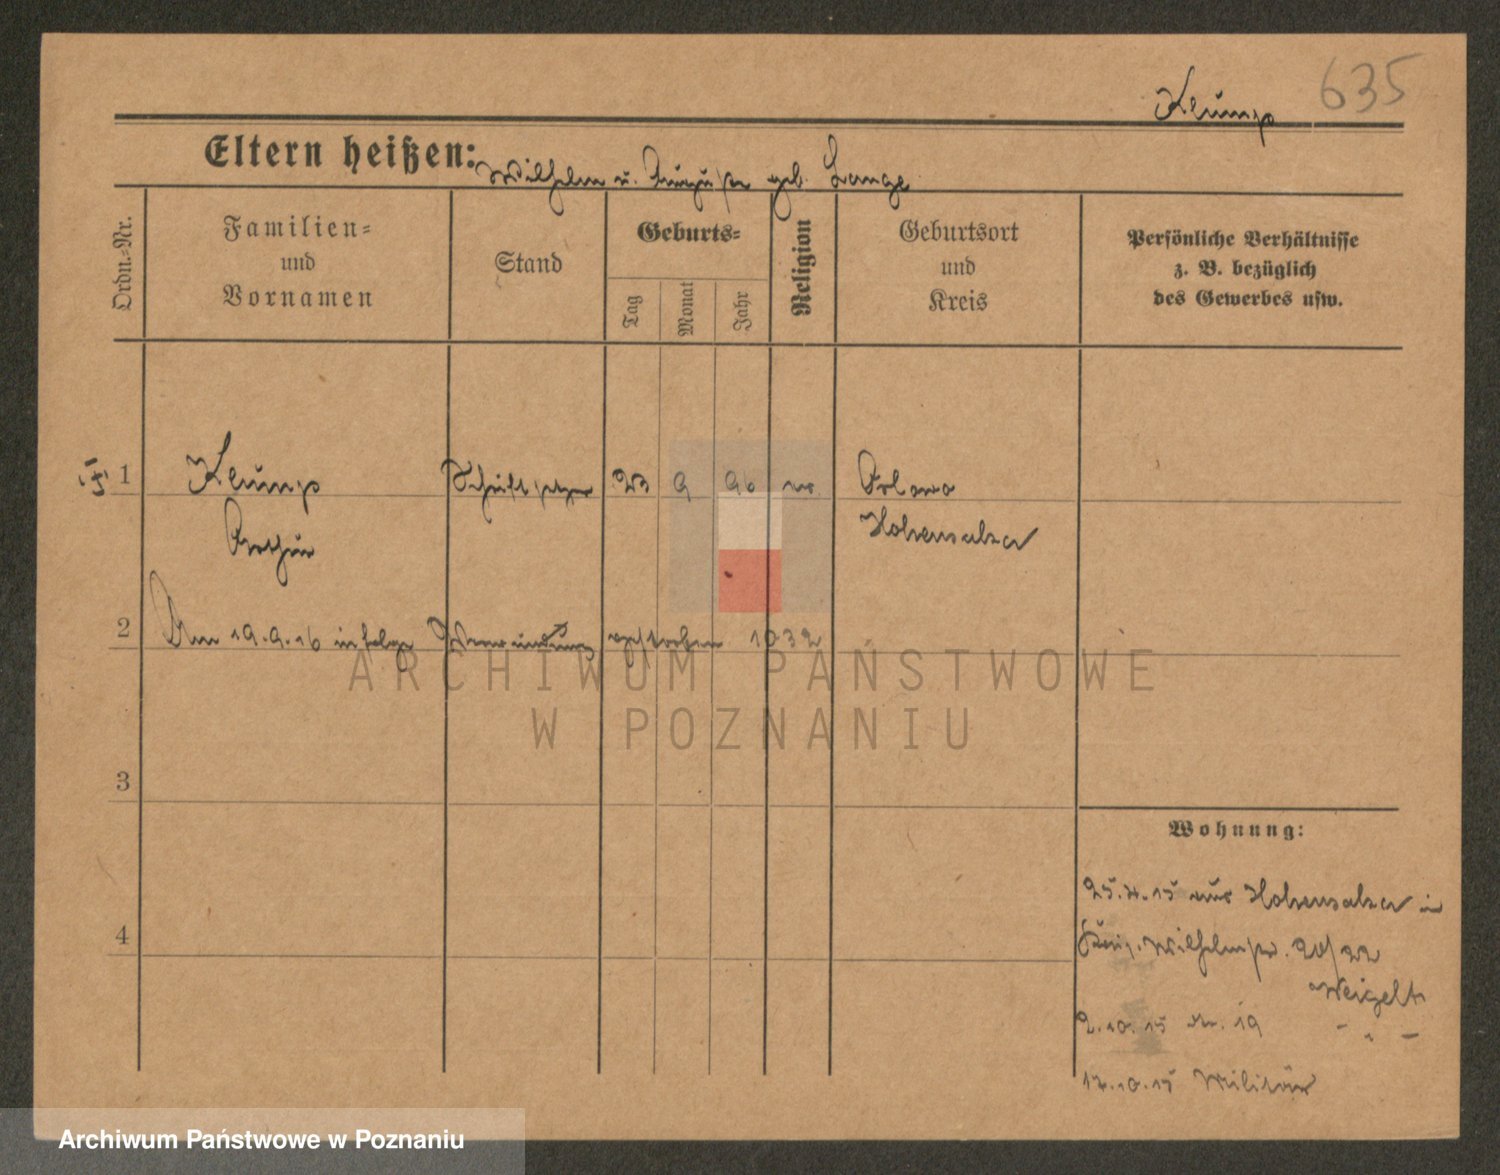 635
Klump
Eltern heißen: Wilhelm u. Auguste geb. Lange
Ordn.-Nr.
Familien-
und
Vornamen
Stand
Geburts-
Tag
Monat
Jahr
Religion
Geburtsort
und
Kreis
Persönliche Verhältnisse
z. B. bezüglich
des Gewerbes usw.
1 Klump Schriftsetzer 23 9 96 ev. Orlowo
Arthur Hohensalza
2 Am 19.9.16 infolge Verwundung gestorben 1032
ARCHIWUM PAŃSTWOWE
W POZNANIU
3
Wohnung:
4
25.4.15 aus Hohensalza in
Wilhelmstr. 20/22
Weigelt
2.10.15 19 - " -
17.10.15 Militär
Archiwum Państwowe w Poznaniu